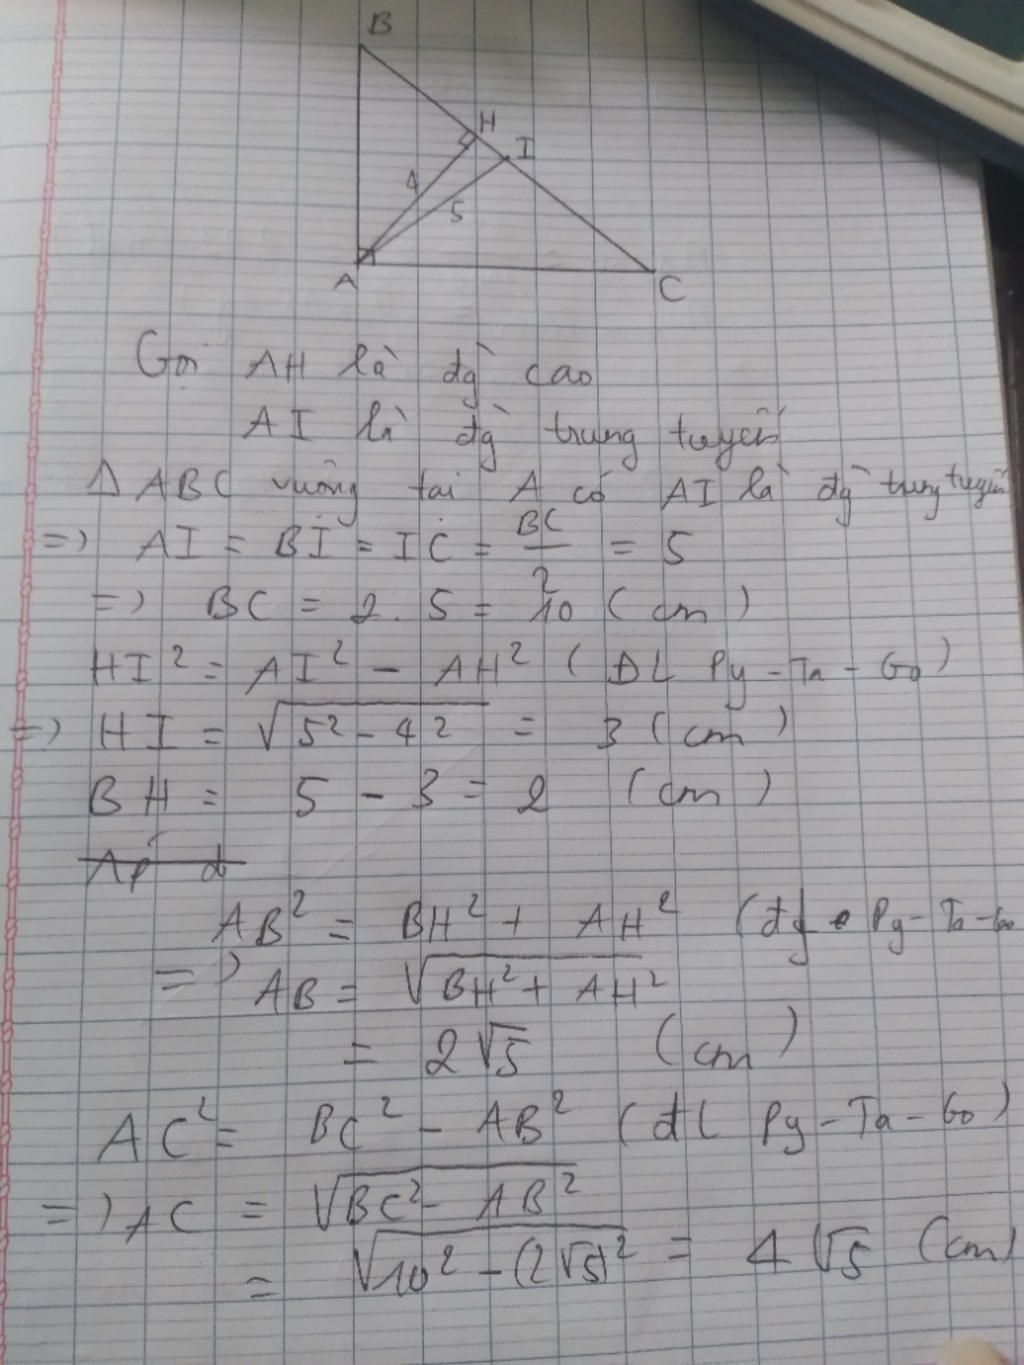 B
H
I
4
5
A
C
Gọi AH là đg` cao
AI là đg` trung tuyến
Δ ABC vuông tại A có AI là đg` trung tuyến
=> AI = BI = IC = BC/2 = 5
=> BC = 2 . 5 = 10 (cm)
HI² = AI² - AH² (ĐL Py-Ta-Go)
=> HI = √5² - 4² = 3 (cm)
BH = 5 - 3 = 2 (cm)
Áp d
AB² = BH² + AH² (Py-Ta-Go
=> AB = √BH² + AH²
= 2√5 (cm)
AC² = BC² - AB² (đL Py-Ta-Go)
=> AC = √BC² - AB²
= √10² - (2√5)² = 4√5 (cm)